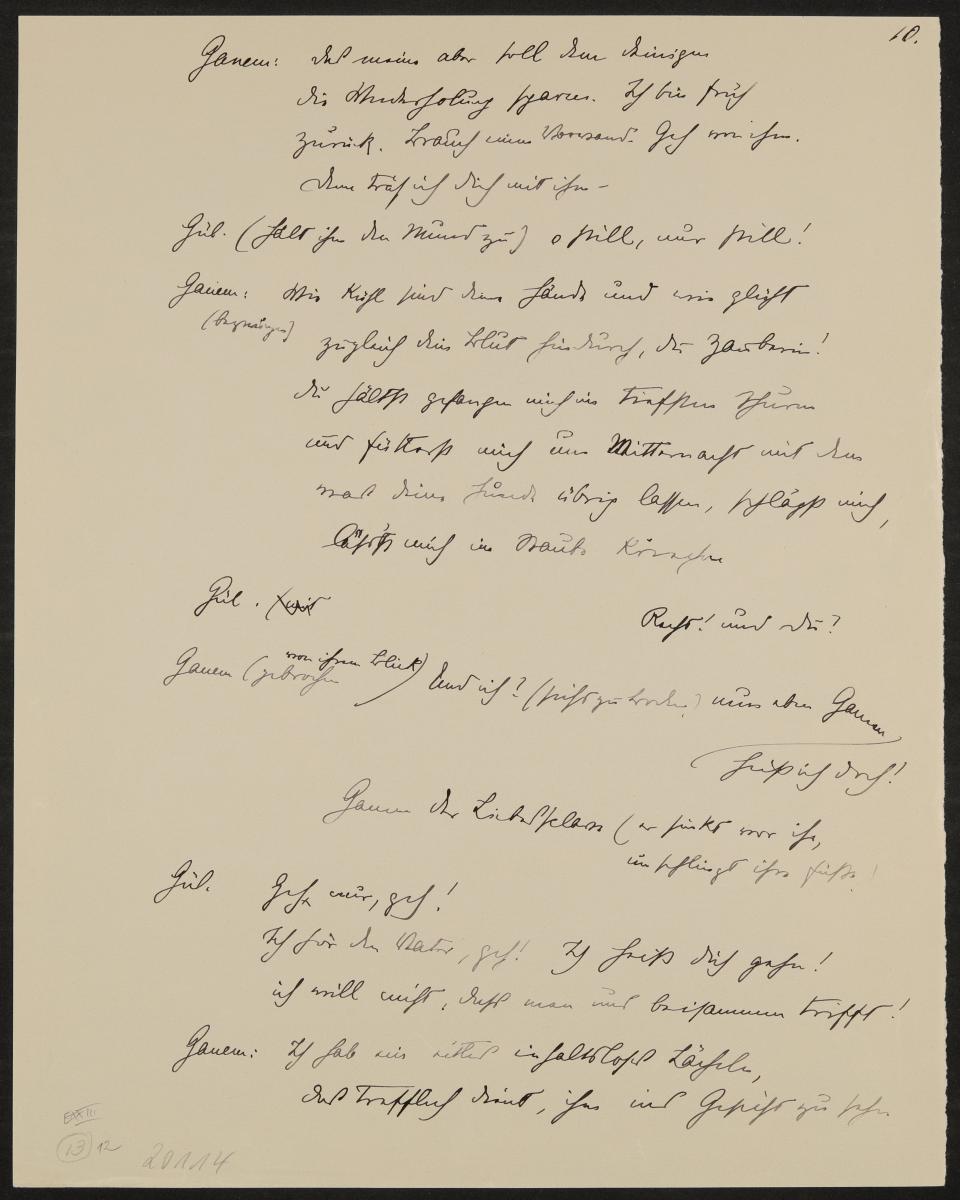 10.
Ganem: Das meine aber soll dem deinigen
die Wiederholung sparen. Ich bin früh
zurück. Brauch einen Vorwand. Geh von ihm.
Denn träf ich dich mit ihm –
Gül. (hält ihm den Mund zu) o still, nur still!
Ganem: Wie kühl sind deine Hände und wie glüht
(bezwungen)
zugleich dein Blut hindurch, du Zauberin!
du hältst gefangen mich im tiefsten Thurm
und fütterst mich um Mitternacht mit dem
was deine Hunde übrig lassen, schlägst mich,
lässt mich im Staube kriechen
Gül. Recht! und du?
Ganem (gebrochen von ihrem Blick) Und ich? (sucht zu trotzen) nun eben Ganem
heiß ich doch!
Ganem der Liebessclave (er sinkt vor ihr,
umschlingt ihre Füße)
Gül. Geh nur, geh!
Ich hör den Vater, geh! Ich heiß dich gehn!
ich will nicht, dass man uns beisammen trifft!
Ganem: Ich hab ein eitles inhaltsloses Lächeln,
das trefflich dient, ihm ins Gesicht zu sehn
XXIII
13 12
20114